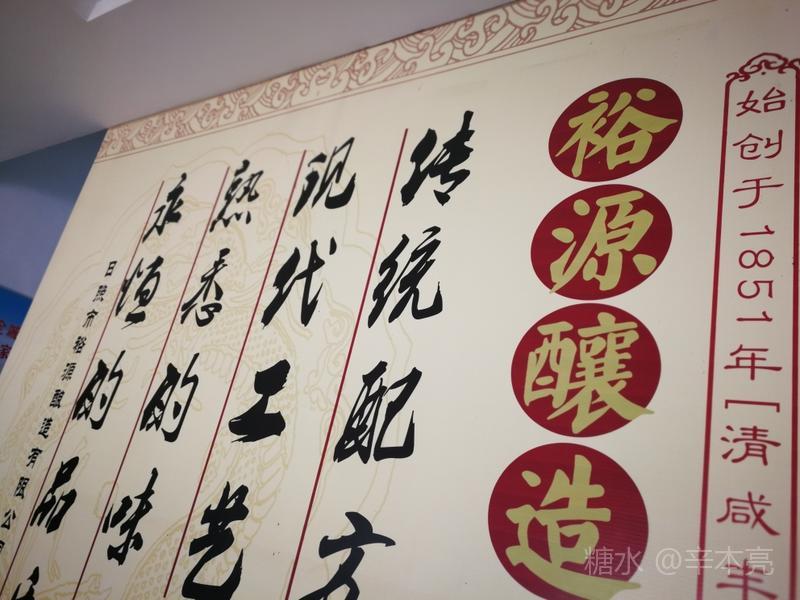 始创于1851年[清咸丰
裕源酿造
传统配方
现代工艺
熟悉的味
永恒的品
日照市裕源酿造有限公司
糖水 @辛本亮